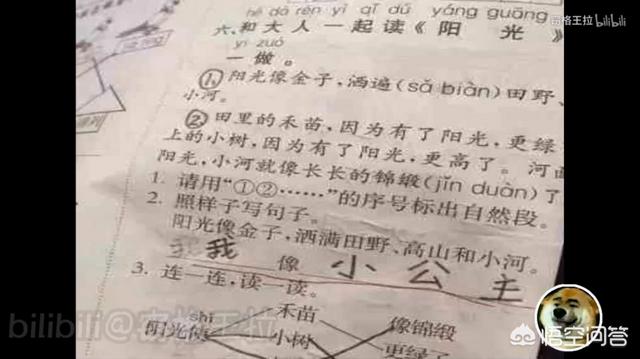 hé dà rén yì qǐ dú yáng guāng
六、和大人一起读《阳光》
yi zuò
一做。
①阳光像金子，洒遍(sǎ biàn)田野、
小河。
②田里的禾苗，因为有了阳光，更绿
上的小树，因为有了阳光，更高了。河面
阳光，小河就像长长的锦缎(jǐn duàn)了
1. 请用“①②……”的序号标出自然段。
2. 照样子写句子。
阳光像金子，洒满田野、高山和小河。
我 像 小公主
3. 连一连，读一读。
shǐ
阳光使
禾苗
像锦缎
小树
更绿了
bilibili
bilibili@
格王拉
悟空问答